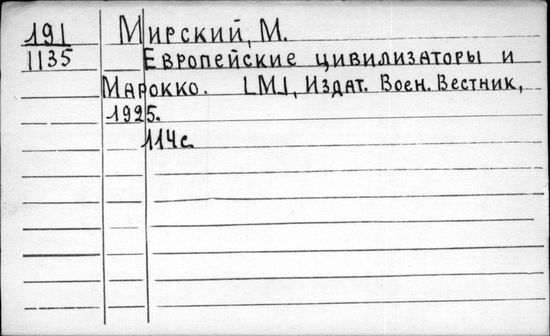 191 Мирский, М.
1135 Европейские цивилизаторы и
Марокко. [М.], Издат. Воен. Вестник,
1925.
114с.